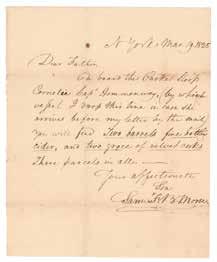 N York Mar 19. 1825
Dear Father,
On board the Packet Sloop
Cornelia Capt Hommonway, by which
vessel I drop this line in case she
arrives before my letter in the mail,
you will find Two parcels fine bottled
cider, and two groce of velvet corks
Three parcels in all. —
Your affectionate
Son
Saml F. B. Morse